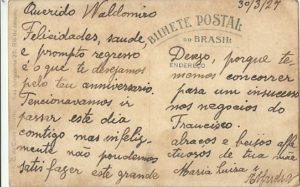 30/3/27
Querido Waldomiro
Felicidades, saude,
e prompto regresso
é o que te desejamos
pelo teu anniversario.
Tencionavamos ir
passar este dia
contigo mas infeliz-
mente não podemos
satisfazer este grande
BILHETE POSTAL
DO BRASIL
ENDEREÇO
Dezejo, porque te
memos concorrer
para um insucesso
nos negocios do
Francisco.
abraços e beijos affe
ctuosos de tua mãe
Maria Luisa e